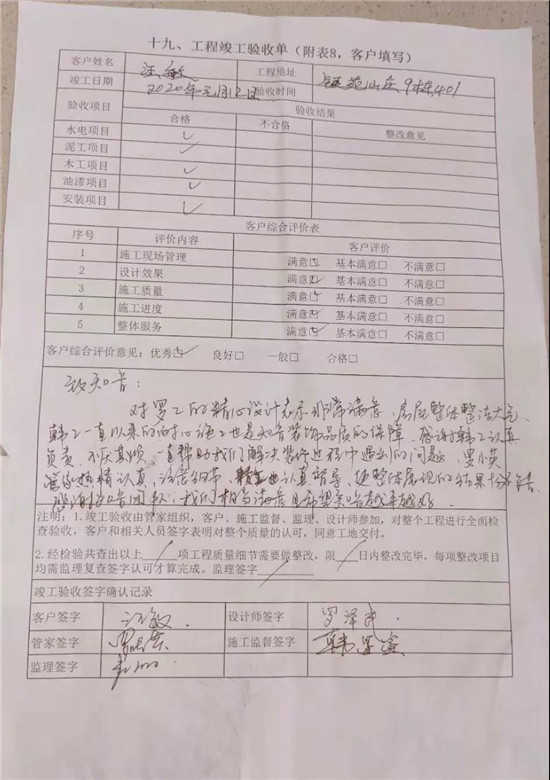 十九、工程竣工验收单（附表8，客户填写）
客户姓名 汪敏 工程地址 山庄9栋401
竣工日期 2020年元月12日 验收时间
验收项目 验收结果
合格 不合格 整改意见
水电项目 ✓
泥工项目 ✓
木工项目 ✓
油漆项目 ✓
安装项目 ✓
客户综合评价表
序号 评价内容 客户评价
1 施工现场管理 满意☑ 基本满意□ 不满意□
2 设计效果 满意☑ 基本满意□ 不满意□
3 施工质量 满意☑ 基本满意□ 不满意□
4 施工进度 满意☑ 基本满意□ 不满意□
5 整体服务 满意☑ 基本满意□ 不满意□
客户综合评价意见：优秀☑ 良好□ 一般□ 合格□
致知音：
对罗工的精心设计表示非常满意，房屋整体整洁大气，
韩工一直以来的耐心施工也是知音装饰品质的保障，感谢韩工认真
负责，不厌其烦，一直帮助我们解决装修过程中遇到的问题，罗小英
管家热情认真，认真督导，使整体展现的结果十分
感谢知音团队，我们相当满意，希望知音越来越好。
注明：1.竣工验收由管家组织，客户、施工监督、监理、设计师参加，对整个工程进行全面检
验收，客户和相关人员签字表明对整个质量的认可，同意工地交付。
2.经检验共查出以上 项工程质量细节需要做整改，限 日内整改完毕，每项整改项目
均需监理复查签字认可才算完成。监理签字
竣工验收签字确认记录
客户签字 汪敏 设计师签字 罗泽
管家签字 罗小英 施工监督签字 韩
监理签字